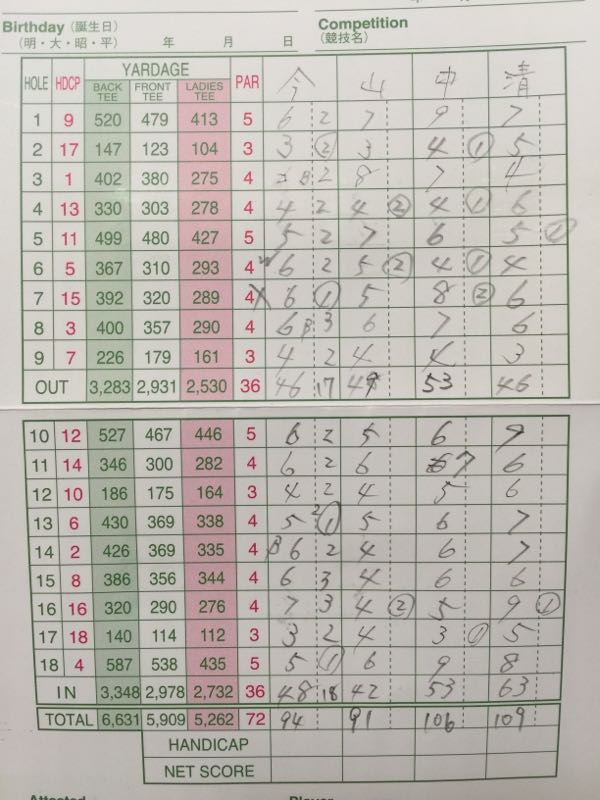 Birthday (誕生日) Competition
(明・大・昭・平) 年 月 日 (競技名)
HOLE HDCP YARDAGE PAR 今 山 中 清
BACK TEE FRONT TEE LADIES TEE
1 9 520 479 413 5 6 2 7 9 7
2 17 147 123 104 3 3 ② 3 4 ① 5
3 1 402 380 275 4 2 8 7 4
4 13 330 303 278 4 4 2 4 ② 4 ① 6
5 11 499 480 427 5 5 2 7 6 5 ①
6 5 367 310 293 4 6 2 5 ② 4 ① 4
7 15 392 320 289 4 6 ① 5 8 ② 6
8 3 400 357 290 4 6 3 6 7 6
9 7 226 179 161 3 4 2 4 4 3
OUT 3,283 2,931 2,530 36 46 17 49 53 46
10 12 527 467 446 5 6 2 5 6 9
11 14 346 300 282 4 6 2 6 7 6
12 10 186 175 164 3 4 2 4 5 6
13 6 430 369 338 4 5 ① 5 6 7
14 2 426 369 335 4 6 2 4 6 7
15 8 386 356 344 4 6 3 4 6 6
16 16 320 290 276 4 7 3 4 ② 5 9 ①
17 18 140 114 112 3 3 2 4 3 ① 5
18 4 587 538 435 5 5 ① 6 9 8
IN 3,348 2,978 2,732 36 48 18 42 53 63
TOTAL 6,631 5,909 5,262 72 94 91 106 109
HANDICAP
NET SCORE